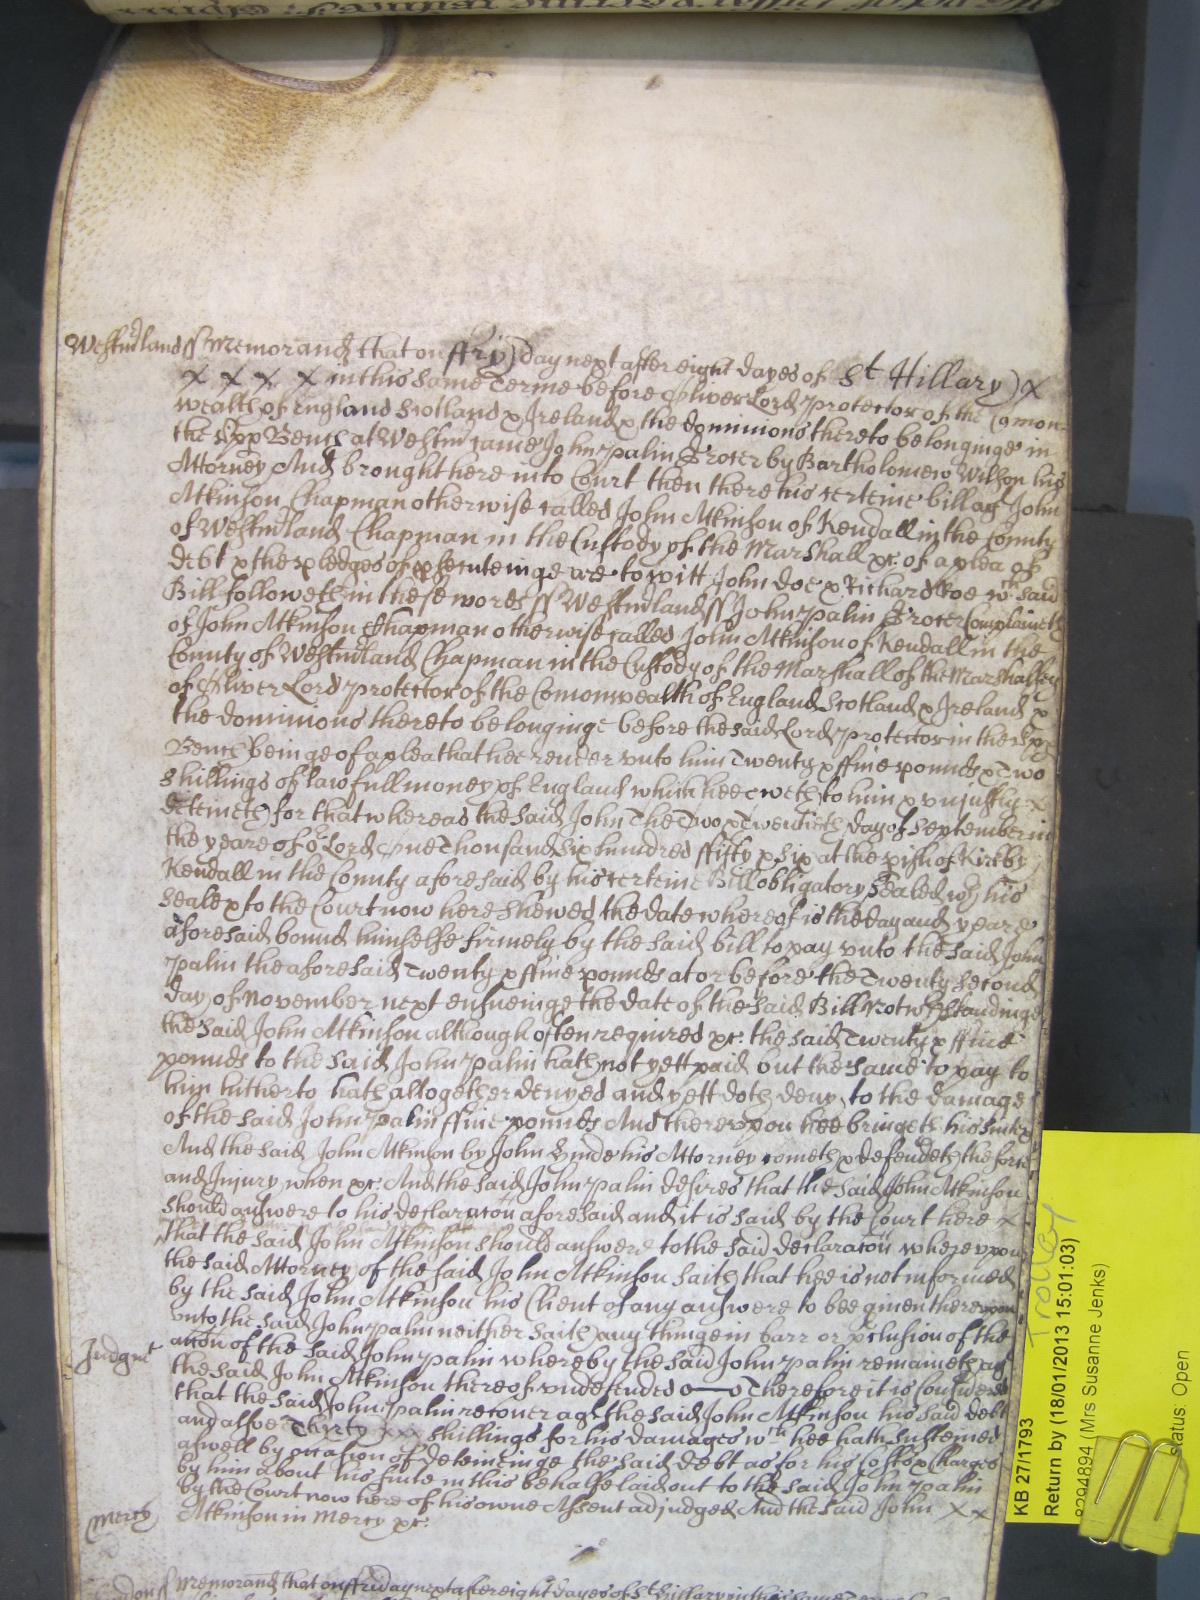 Westmrland ss Memorand that on ffryday next after eight dayes of St Hillary x
x x x x in this same Terme before Oliver Lord Protector of the Comon-
wealth of England Scotland & Ireland & the dominions thereto belonginge in
the Upp Bench at Westmr came John Palin Grocer by Bartholomew Wilson his
Attorney And brought here into Court then there his certeine bill agt John
Atkinson Chapman otherwise called John Atkinson of Kendall in the County
of Westmrland Chapman in the Custody of the Marshall &c of a plea of
debt & the pledges of psecuteinge are to witt John doe & Richard Roe wch said
Bill followeth in these words ss Westmrland ss John Palin Grocer Complaineth
of John Atkinson Chapman otherwise called John Atkinson of Kendall in the
County of Westmrland Chapman in the Custody of the Marshall of the Marshalsey
of Oliver Lord Protector of the Comonwealth of England Scotland & Ireland &
the dominions thereto belonginge before the said Lord Protector in the Upp
Bench beinge of a plea that hee render unto him Twenty & ffive pounds & Two
shillings of lawfull money of England which hee oweth to him & uniustly x
deteineth for that whereas the said John The Two & Twentieth day of September in
the yeare of or Lord One Thousand Six hundred ffifty & Six at the pish of Kirkby
Kendall in the County aforesaid by his certeine Bill obligatory Sealed wth his
Seale & to the Court now here shewed the date whereof is the day and yeare
aforesaid bound himselfe firmely by the said bill to pay unto the said John
Palin the aforesaid Twenty & ffive pounds at or before the Twenty Second
day of November next ensueinge the date of the said Bill Notwthstandinge
the said John Atkinson although often required &c the said Twenty & ffive
pounds to the said John Palin hath not yett paid but the same to pay to
him hitherto hath altogether denyed and yett doth deny to the damage
of the said John Palin ffive pounds And thereupon hee bringeth his suite
And the said John Atkinson by John his Attorney cometh & defendeth the force
and Injury when &c And the said John Palin desires that the said John Atkinson
should answere to his declaracon aforesaid and it is said by the Court here x
That the said John Atkinson should answere to the said declaracon whereupon
the said Attorney of the said John Atkinson saith that hee is not informed
by the said John Atkinson his Client of any answere to bee given thereupon
unto the said John Palin neither saith any thinge in barr or pclusion of the
Judgmt accon of the said John Palin whereby the said John Palin remaineth agt
the said John Atkinson thereof undefended o—o Therefore it is Considered
that the said John Palin recover agt the said John Atkinson his said debt
and alsoe Thirty x x x shillings for his damages wch hee hath susteined
aswell by occasion of deteininge the said debt as for his Costs & Charges
by him about his suite in this behalfe laid out to the said John Palin
by the Court now here of his owne Assent adjudged And the said John x x
Mercy Atkinson in Mercy &c
Memorand that on ffriday next after eight dayes of St Hillary in this same Terme
KB 27/1793
Return by (18/01/2013 15:01:03)
(Mrs Susanne Jenks)
Status: Open
Trolley